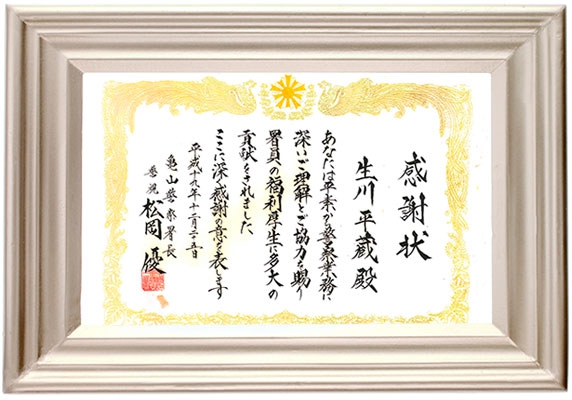 感謝状
生川平蔵殿
あなたは平素から警察業務に
深いご理解とご協力を賜り
署員の福利厚生に多大の
貢献をされました
ここに深く感謝の意を表します
平成十九年十二月二十五日
亀山警察署長
警視 松岡優